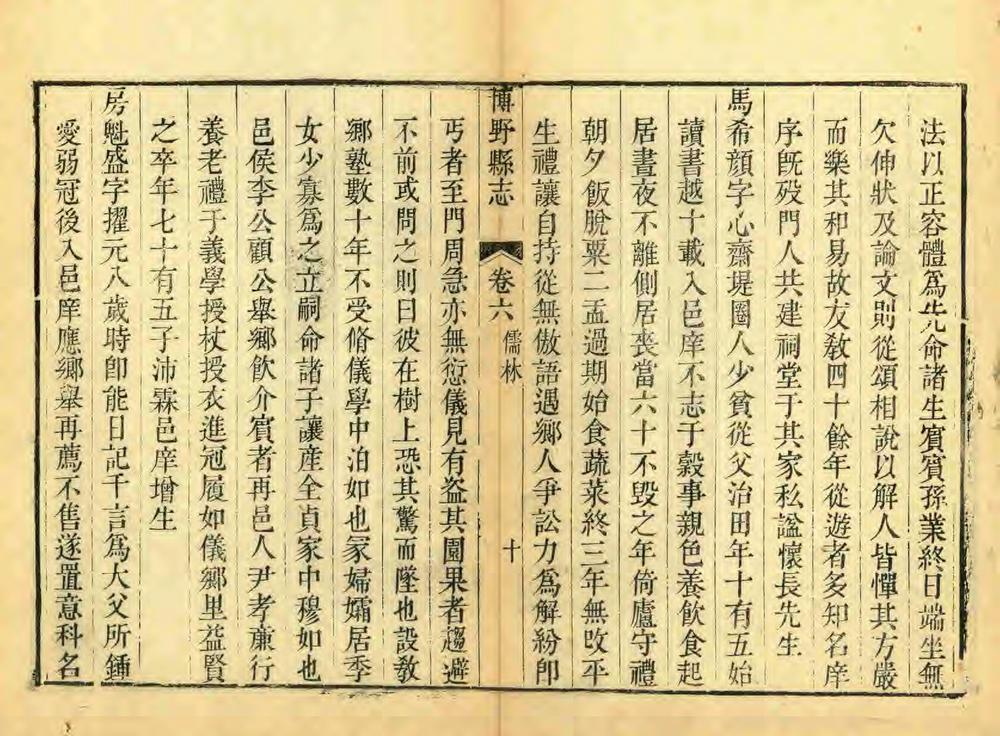 法以正容體爲先命諸生賓賓孫業終日端坐無
欠伸狀及論文則從頌相說以解人皆憚其方嚴
而樂其和易故友敎四十餘年從遊者多知名庠
序旣歿門人共建祠堂于其家私諡懷長先生
馬希顔字心齋堤圈人少貧從父治田年十有五始
讀書越十載入邑庠不志于穀事親色養飲食起
居晝夜不離側居喪當六十不毀之年倚廬守禮
朝夕飯脫粟二盂過期始食蔬菜終三年無改平
生禮讓自持從無傲語遇鄉人爭訟力爲解紛卽
博野縣志 卷六 儒林 十
丐者至門周急亦無愆儀見有盜其園果者趨避
不前或問之則曰彼在樹上恐其驚而墜也設敎
鄉塾數十年不受脩儀學中泊如也冢婦孀居季
女少寡爲之立嗣命諸子讓産全貞家中穆如也
邑侯李公顧公舉鄉飲介賓者再邑人尹孝亷行
養老禮于義學授杖授衣進冠履如儀鄉里益賢
之卒年七十有五子沛霖邑庠增生
房魁盛字擢元八歲時卽能日記千言爲大父所鍾
愛弱冠後入邑庠應鄉舉再薦不售遂置意科名